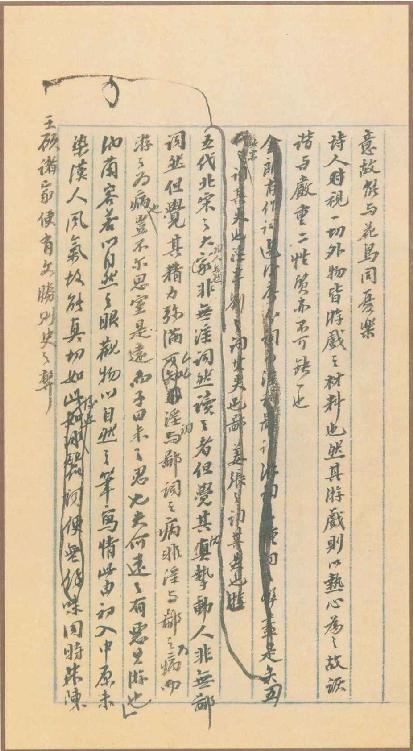 意故能与花鳥同憂樂
詩人對視一切外物皆游戲之材料也然其游戲則以熱心為之故詼
諧与嚴重二性質亦不可缺一也
是矣五
之詞其失也淫辛劉之詞其失也鄙姜張之詞其失也游
五代北宋之大家非無淫詞然讀之者但覺其真摯動人非無鄙
詞然但覺其精力彌滿可知淫与鄙詞之病非淫与鄙之病而
游之為病也豈不爾思室是遠而子曰未之思也夫何遠之有惡其游也
納蘭容若以自然之眼觀物以自然之筆寫情此由初入中原未
染漢人風氣故能真切如此同時朱陳
王顧諸家便有文勝則史之弊